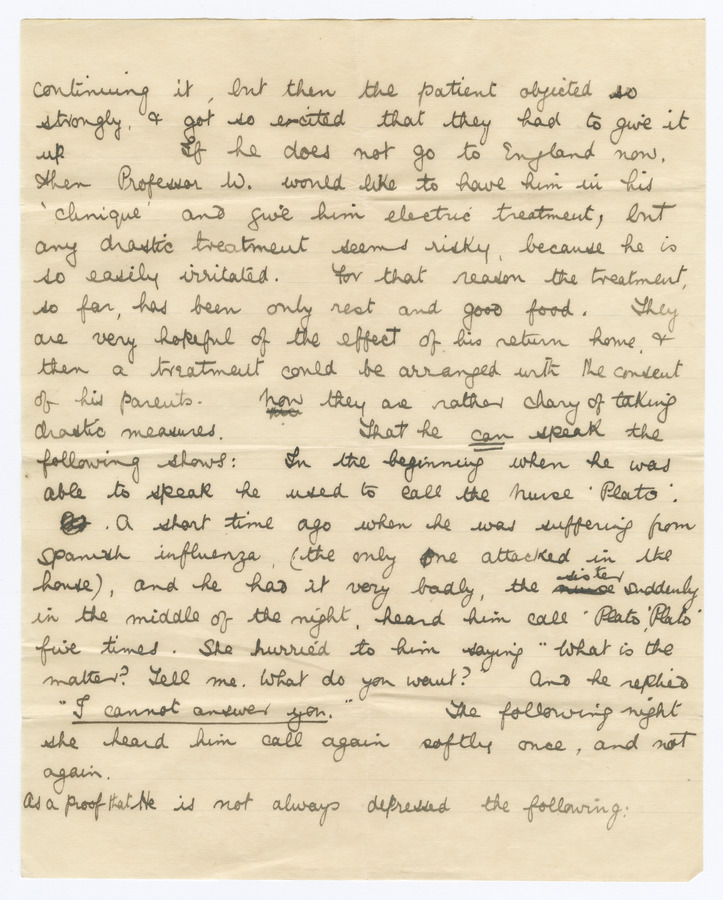 continuing it, but then the patient objected so
strongly, & got so excited that they had to give it
up If he does not go to England now,
then Professor W. would like to have him in his
'clinique' and give him electric treatment, but
any drastic treatment seems risky, because he is
so easily irritated. For that reason the treatment,
so far, has been only rest and good food. They
are very hopeful of the effect of his return home, &
then a treatment could be arranged with the consent
of his parents. Now they are rather chary of taking
drastic measures. That he can speak the
following shows: In the beginning when he was
able to speak he used to call the nurse 'Plato'.
. A short time ago when he was suffering from
Spanish influenza, (the only one attacked in the
house), and he had it very badly, the nurse sister suddenly
in the middle of the night, heard him call 'Plato, Plato'
five times. She hurried to him saying "What is the
matter? Tell me. What do you want?" And he replied
"I cannot answer you." The following night
she heard him call again softly once, and not
again.
As a proof that He is not always depressed the following: